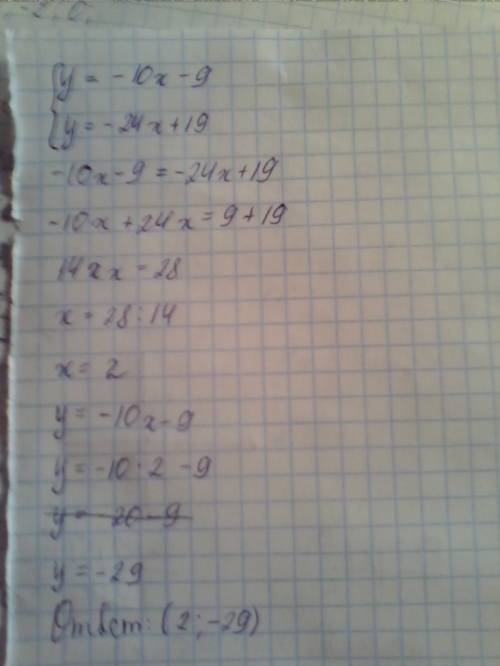 {y = -10x - 9
{y = -24x + 19
-10x - 9 = -24x + 19
-10x + 24x = 9 + 19
14xx = 28
x = 28 : 14
x = 2
y = -10x - 9
y = -10 · 2 - 9
y = -20 - 9
y = -29
Ответ: (2; -29)